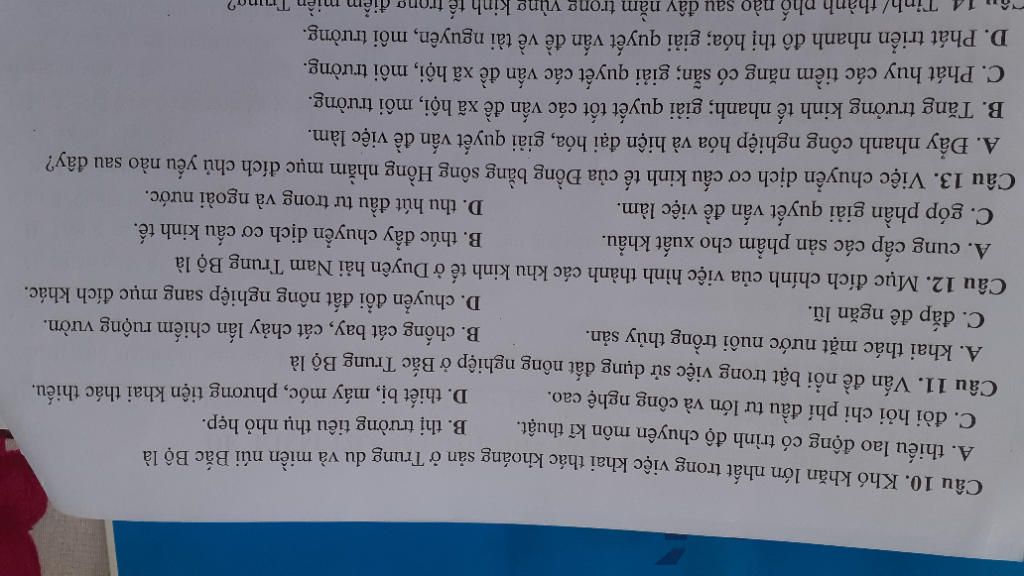 Câu 10. Khó khăn lớn nhất trong việc khai thác khoáng sản ở Trung du và miền núi Bắc Bộ là
A. thiếu lao động có trình độ chuyên môn kĩ thuật. B. thị trường tiêu thụ nhỏ hẹp.
C. đòi hỏi chi phí đầu tư lớn và công nghệ cao. D. thiết bị, máy móc, phương tiện khai thác thiếu.
Câu 11. Vấn đề nổi bật trong việc sử dụng đất nông nghiệp ở Bắc Trung Bộ là
A. khai thác mặt nước nuôi trồng thủy sản. B. chống cát bay, cát chảy lấn chiếm ruộng vườn.
C. đắp đê ngăn lũ. D. chuyển đổi đất nông nghiệp sang mục đích khác.
Câu 12. Mục đích chính của việc hình thành các khu kinh tế ở Duyên hải Nam Trung Bộ là
A. cung cấp các sản phẩm cho xuất khẩu. B. thúc đẩy chuyển dịch cơ cấu kinh tế.
C. góp phần giải quyết vấn đề việc làm. D. thu hút đầu tư trong và ngoài nước.
Câu 13. Việc chuyển dịch cơ cấu kinh tế của Đồng bằng sông Hồng nhằm mục đích chủ yếu nào sau đây?
A. Đẩy nhanh công nghiệp hóa và hiện đại hóa, giải quyết vấn đề việc làm.
B. Tăng trưởng kinh tế nhanh; giải quyết tốt các vấn đề xã hội, môi trường.
C. Phát huy các tiềm năng có sẵn; giải quyết các vấn đề xã hội, môi trường.
D. Phát triển nhanh đô thị hóa; giải quyết vấn đề về tài nguyên, môi trường.
Câu 14. Tỉnh/ thành phố nào sau đây nằm trong vùng kinh tế trọng điểm miền Trung?